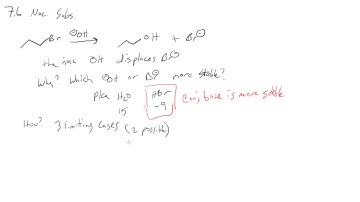 7.6 Nuc. Subs.
Br ⊖OH → OH + Br⊖
the inc OH displaces Br⊖
Why? Which ⊖OH or Br⊖ more stable?
pKa H2O HBr Conj base is more stable
15 -9
How? 3 limiting cases (2 possible)